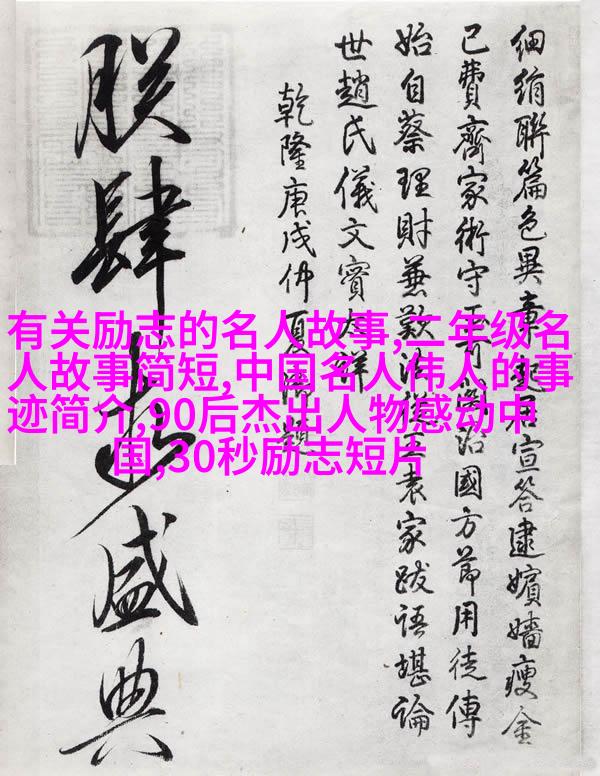 細絹聯篇色異章宣答逮嬪嬙瘦金
已費齊家術守治國方節用徒傳
始自蔡理財兼歎王袁家跋語堪論
世趙氏儀文實太詳
乾隆庚戌仲夏御題
肆盛典
有关励志的名人故事,二年级名
人故事简短,中国名人伟人的事
迹简介,90后杰出人物感动中
国,30秒励志短片